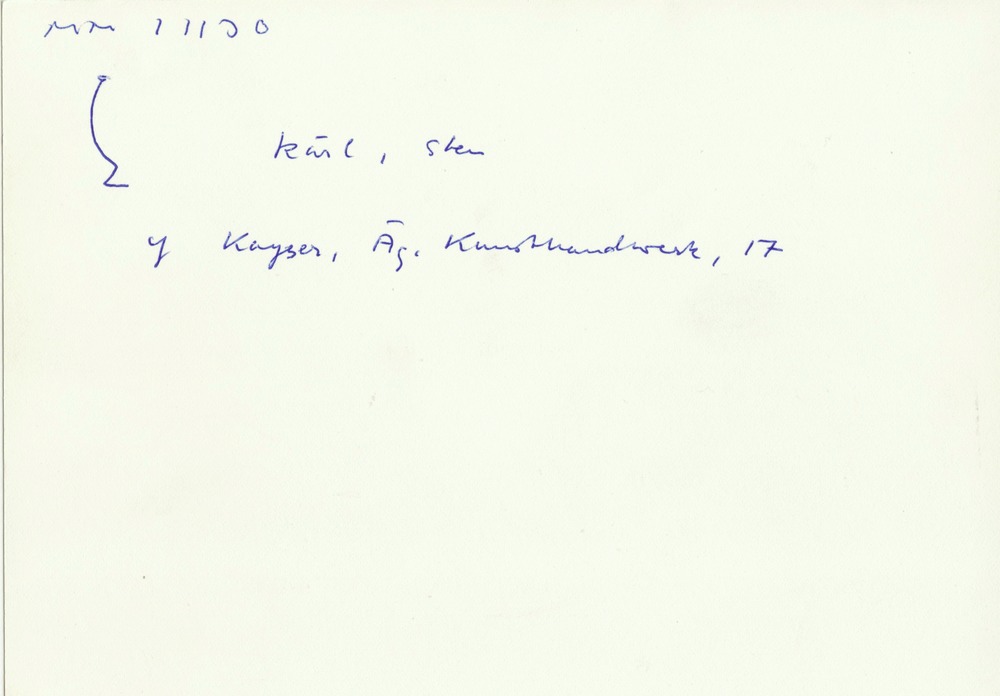 MM 11130
Kärl, sten
cf Kayser, Äg. Kunsthandwerk, 17